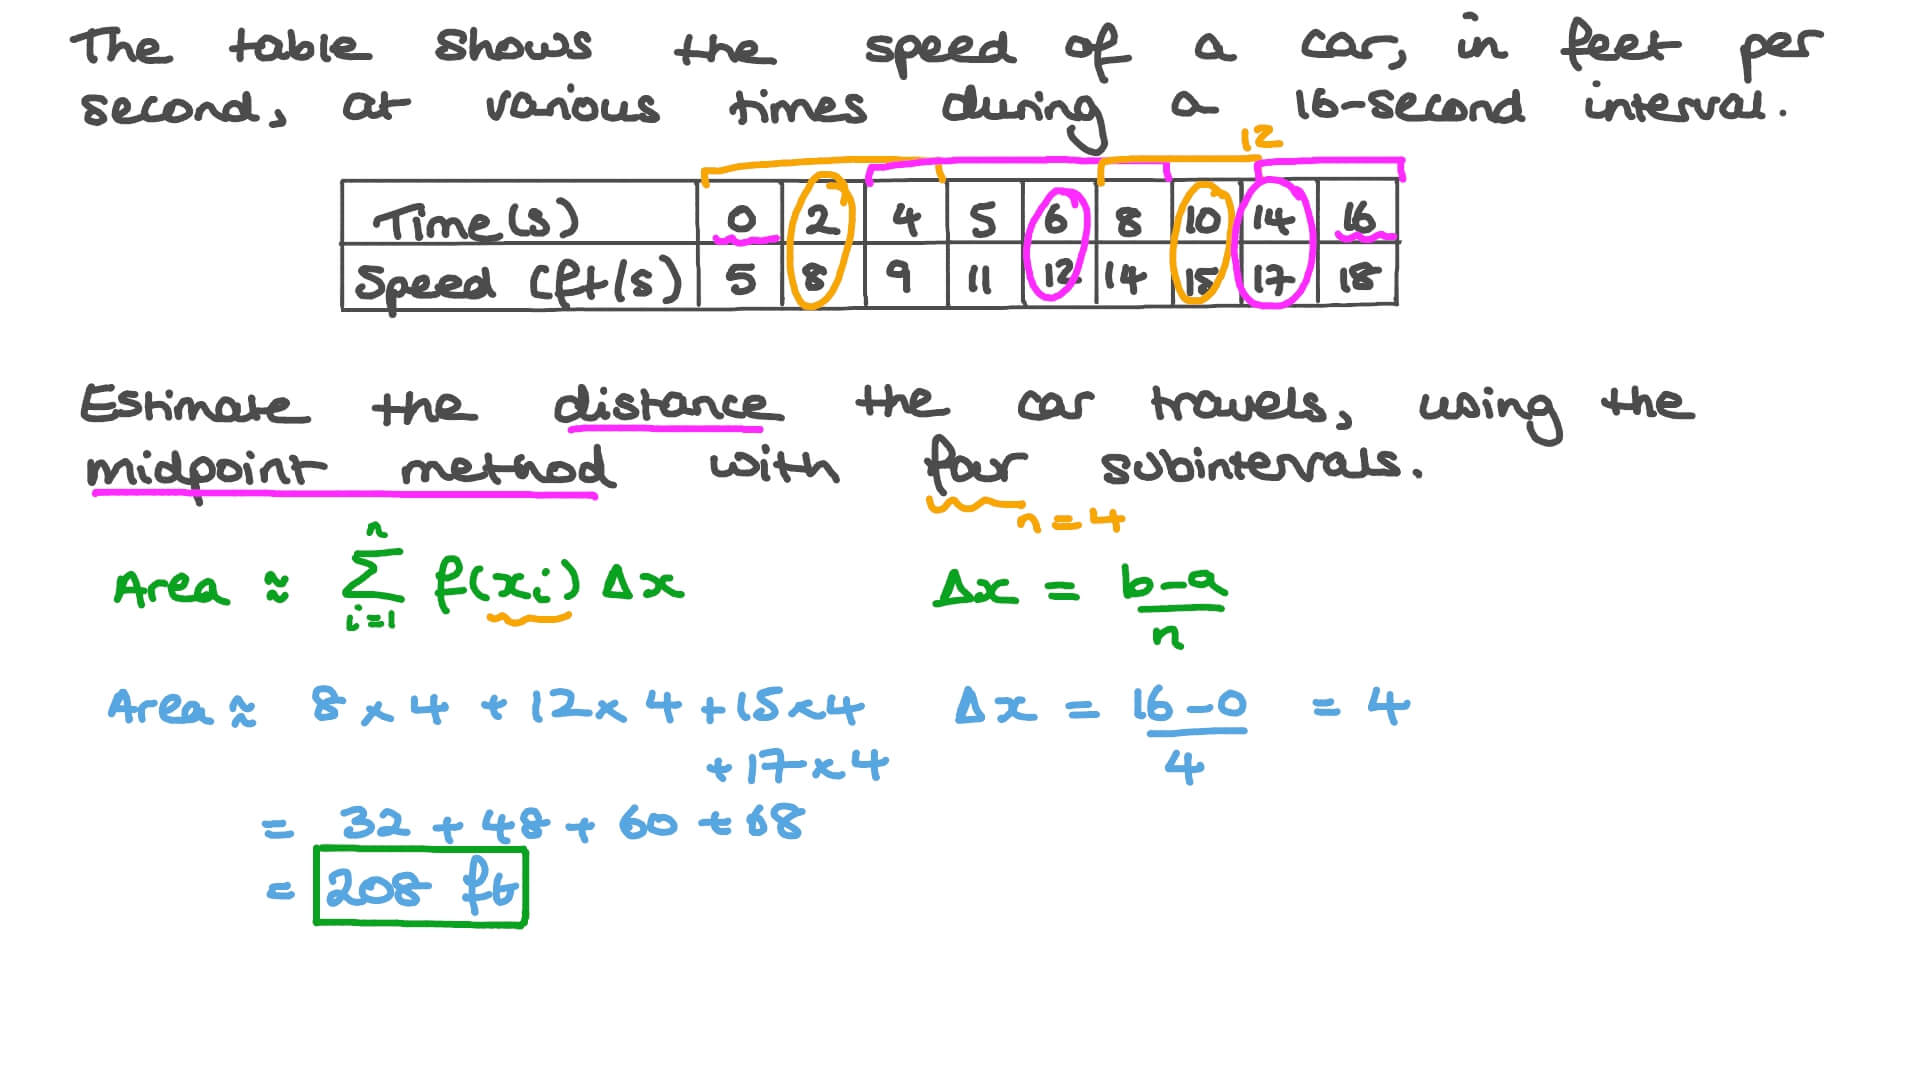 The table shows the speed of a car, in feet per
second, at various times during a 16-second interval.
12
Time(s) 0 2 4 5 6 8 10 14 16
Speed (ft/s) 5 8 9 11 12 14 15 17 18
Estimate the distance the car travels, using the
midpoint method with four subintervals.
n=4
Area ≈ n Σ i=1 f(xi) Δx Δx = b-a / n
Area ≈ 8 × 4 + 12 × 4 + 15 × 4 Δx = 16-0 / 4 = 4
+ 17 × 4
= 32 + 48 + 60 + 68
= 208 ft